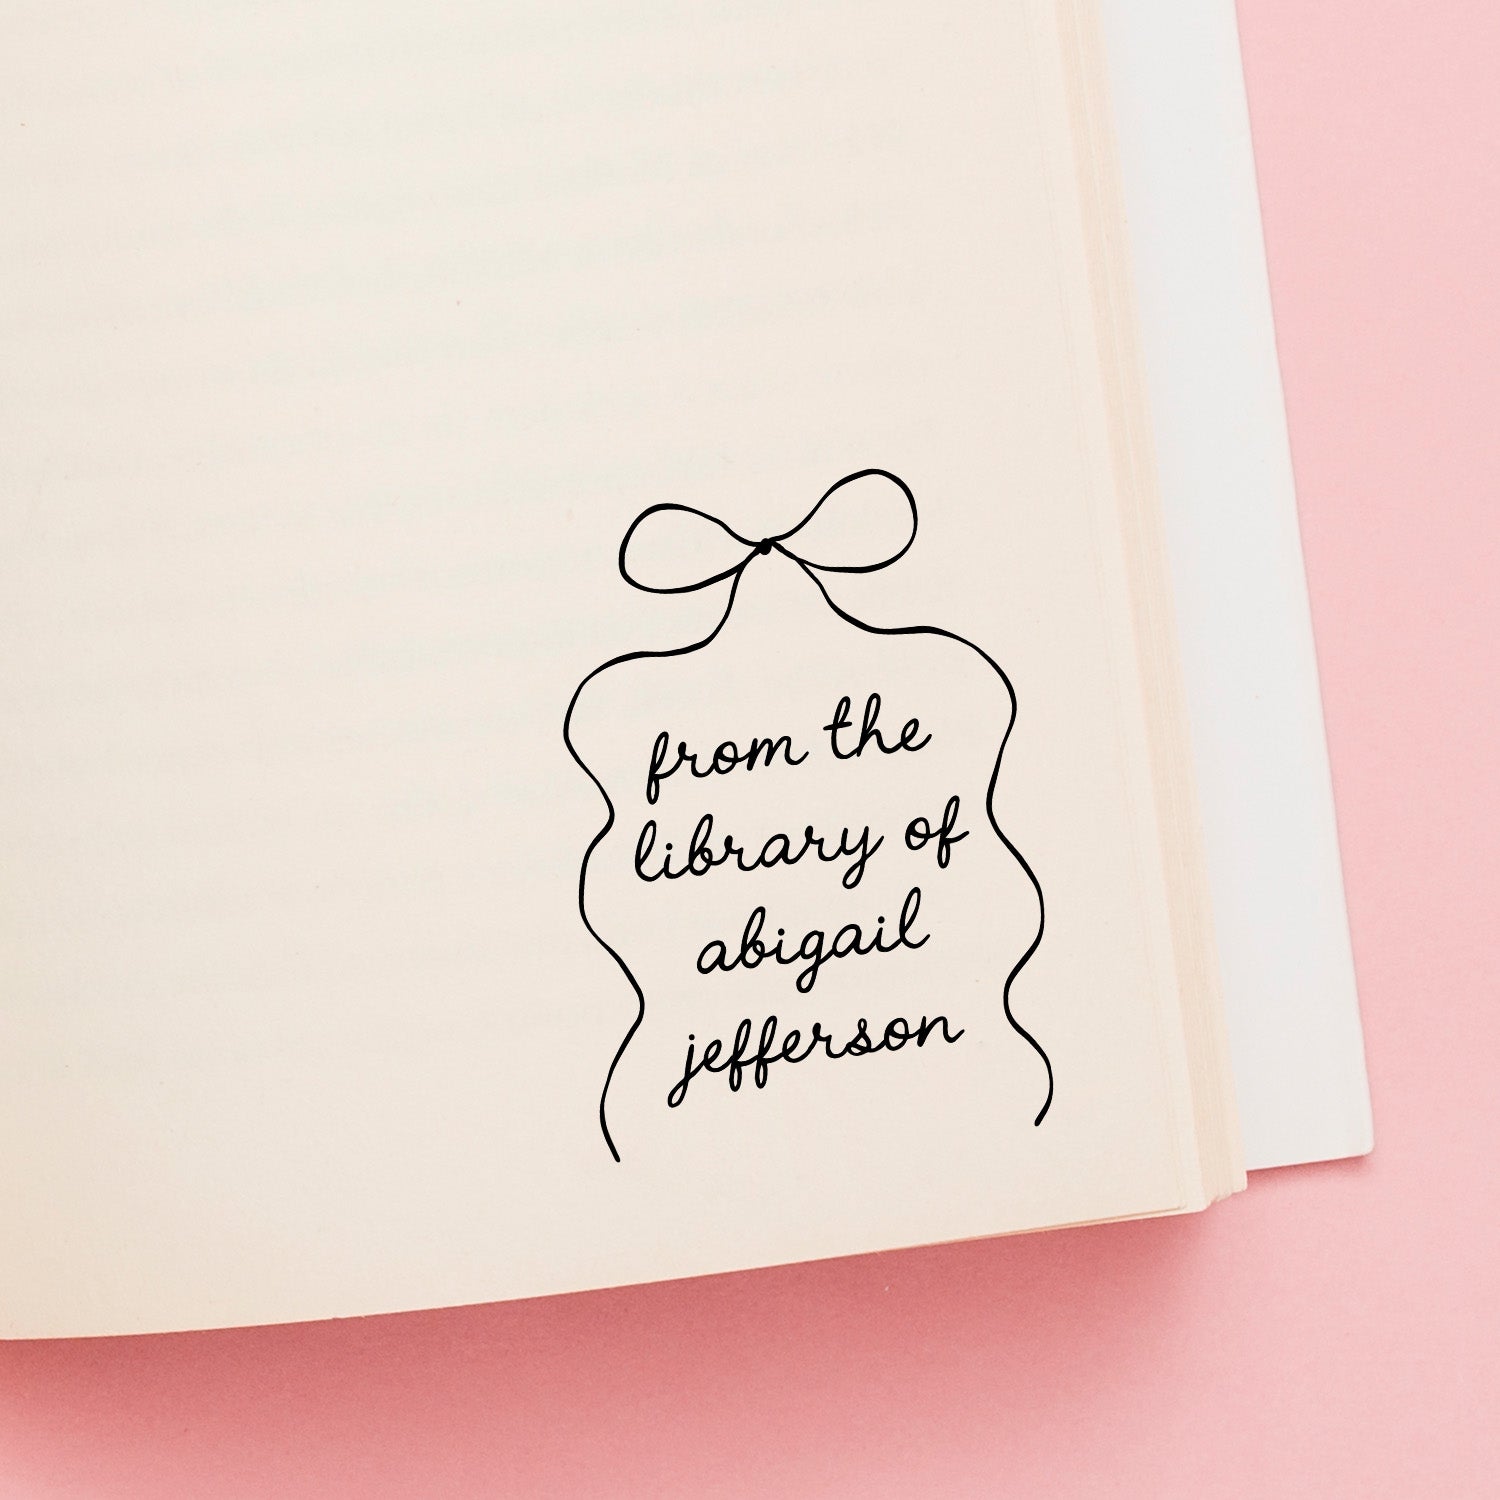 from the
library of
abigail
jefferson